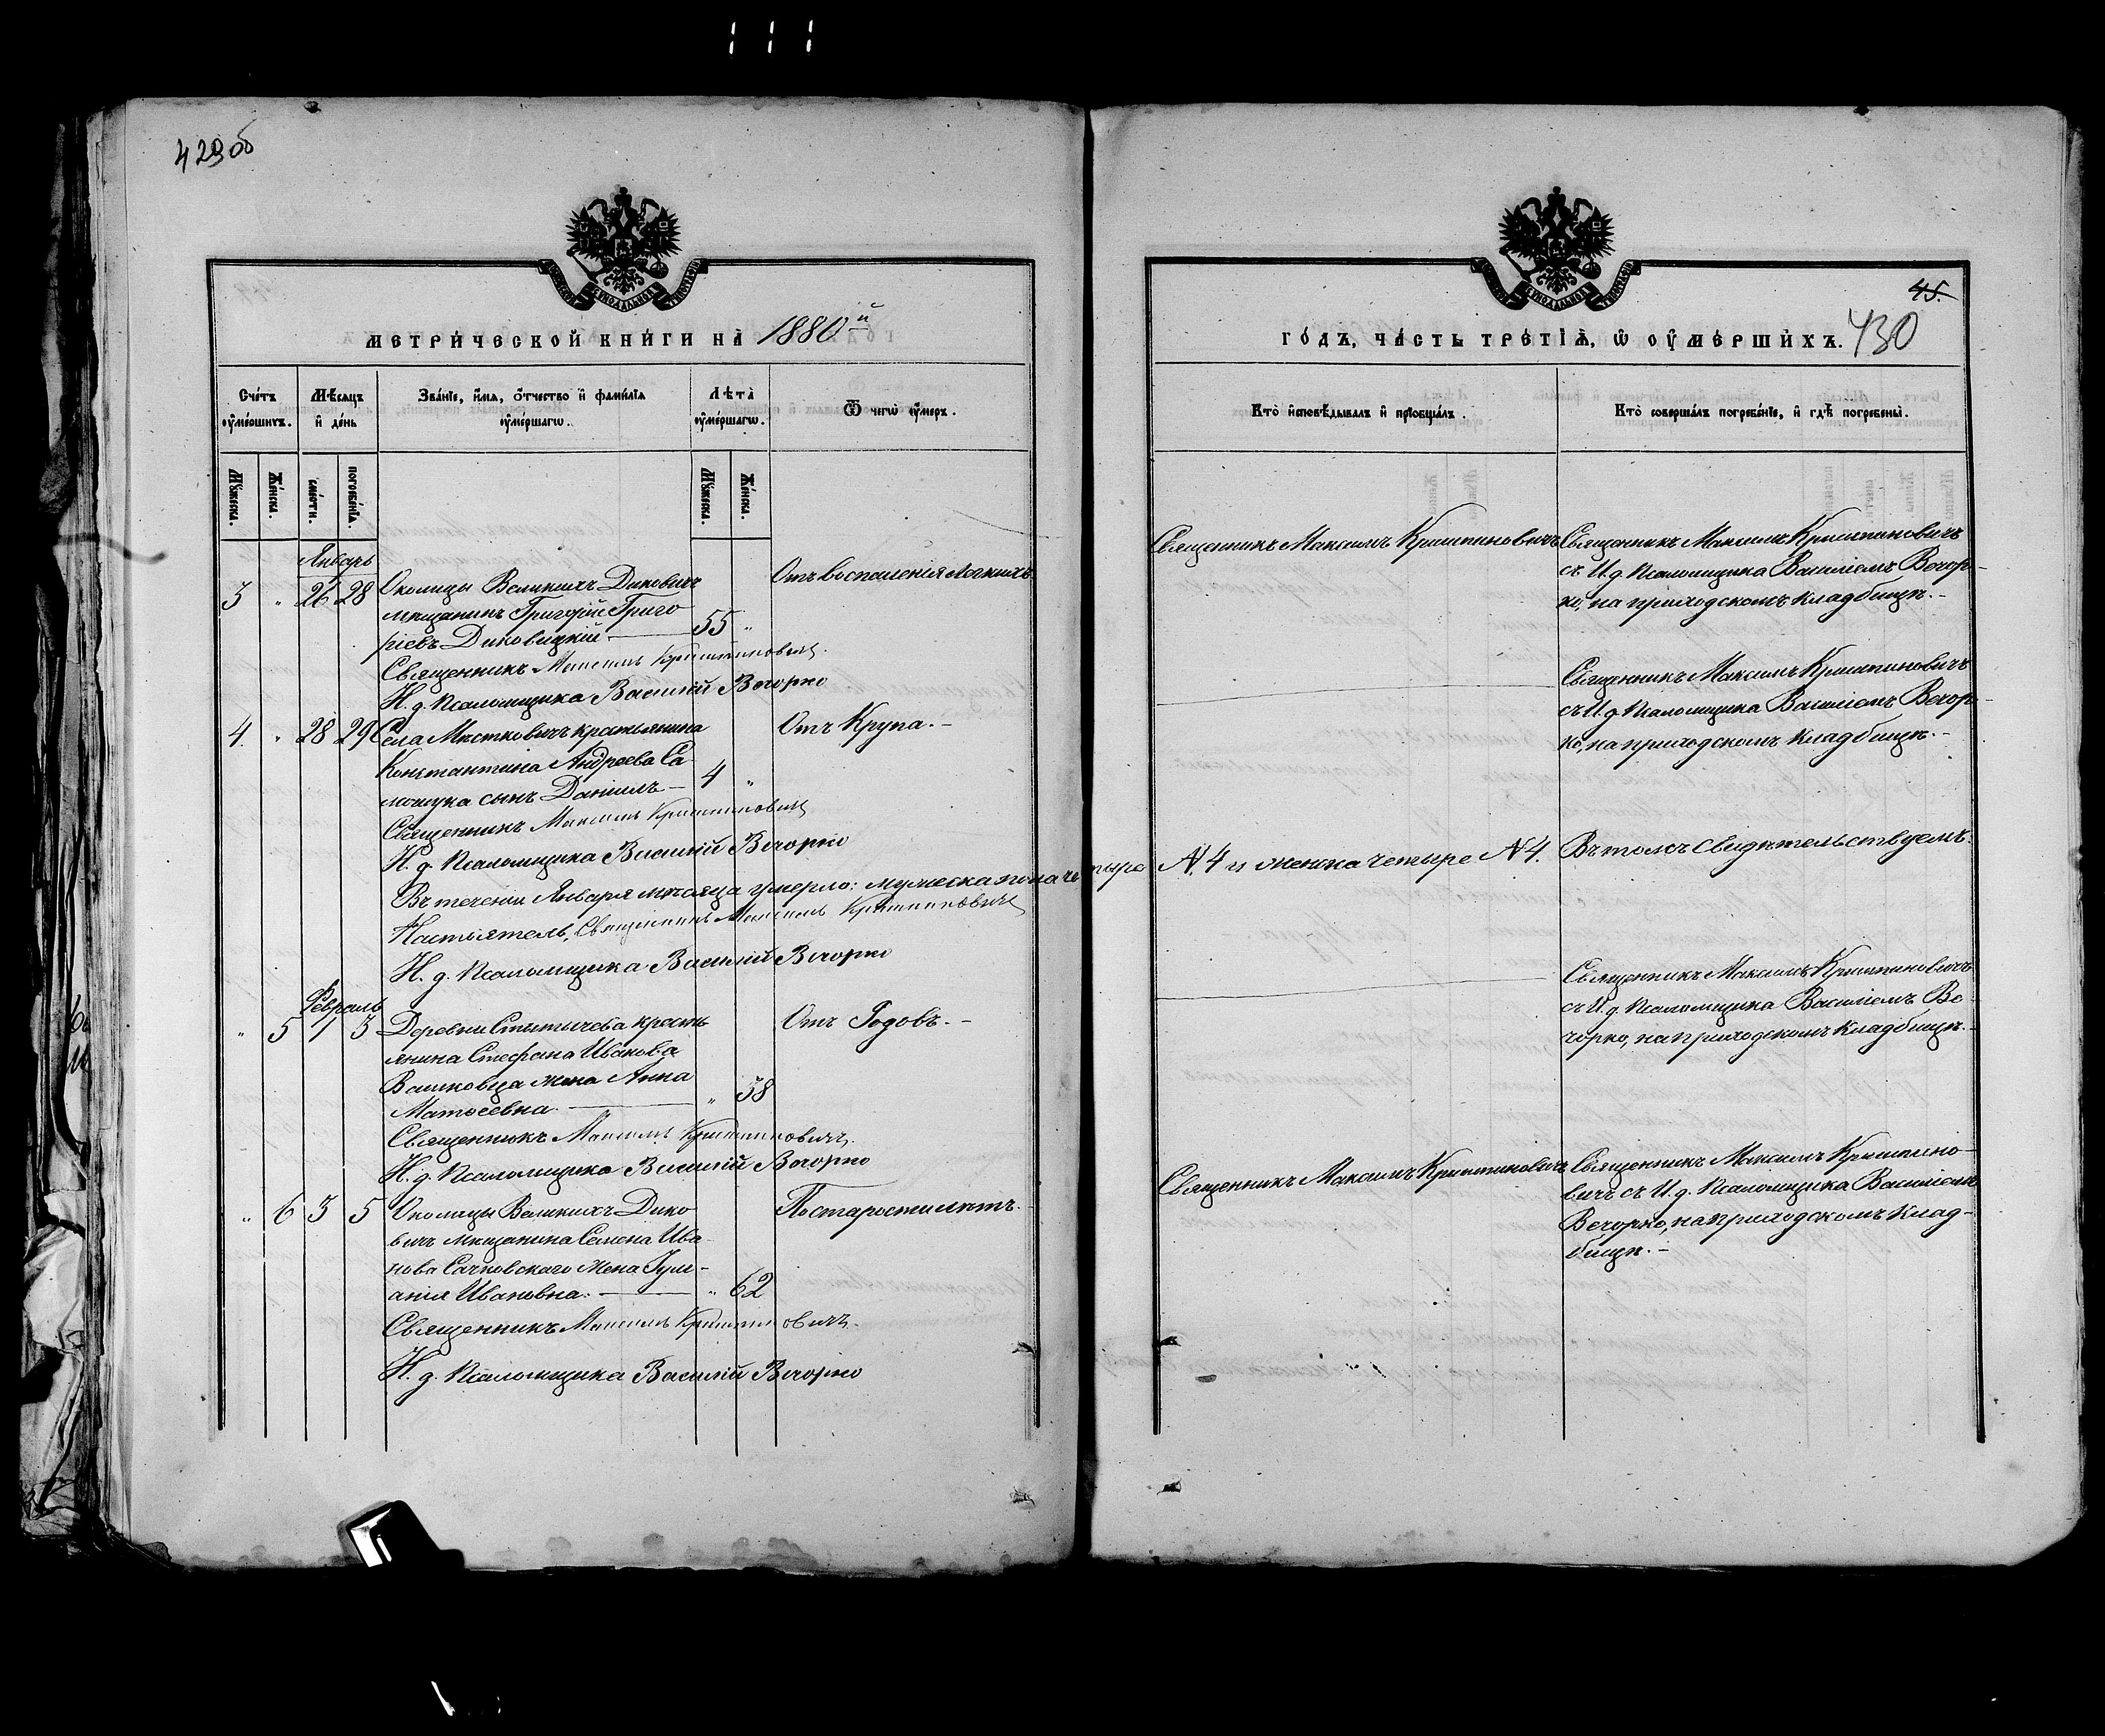 429 об
МЕТРИЧЕСКОЙ КНИГИ НА 1880й
Счетъ умершихъ.
Мѣсяцъ и день
Званіе, имя, отчество и фамилія умершаго.
Лѣта умершаго.
Отъ чего умеръ.
Мужеска.
Женска.
смерти.
погребенія.
Мужеска.
Женска.
Январь
3 " 26 28 Околицы Великихъ Диковичъ
мѣщанинъ Григорій Григо
ріевъ Диковицкій. 55 "
Отъ воспаленія легкихъ
Священникъ Максимъ Криштиновичъ.
И. д. Псаломщика Василій Вечорко
4. " 28 29 Села Мѣстковичъ крестьянина
Константина Андреева Са
мощука сынъ Даніилъ – 4 "
Отъ Крупа. –
Священникъ Максимъ Криштиновичъ
И. д. Псаломщика Василій Вечорко
Въ теченіи Января мѣсяца умерло: мужеска пола четыре № 4 и женска четыре № 4. Въ томъ свидѣтельствуемъ:
Настоятель, Священникъ Максимъ Криштиновичъ
И. д. Псаломщика Василій Вечорко
Февраль
" 5 1 3 Деревни Стытычева кресть
янина Стефана Иванова
Вашковца жена Анна
Матѳеевна. " 38
Отъ Родовъ. –
Священникъ Максимъ Криштиновичъ.
И. д. Псаломщика Василій Вечорко
" 6 3 5 Околицы Великихъ Дико
вичъ мѣщанина Семена Ива
нова Сачковскаго жена Іули-
анія Ивановна. " 62
По старости лѣтъ.
Священникъ Максимъ Криштиновичъ.
И. д. Псаломщика Василій Вечорко
45.
430
ГОДЪ, ЧАСТЬ ТРЕТІЯ, О УМЕРШИХЪ.
Кто исповѣдывалъ и пріобщалъ.
Кто совершалъ погребеніе, и гдѣ погребены.
Священникъ Максимъ Криштиновичъ
Священникъ Максимъ Криштиновичъ
съ И. д. Псаломщика Василіемъ Вечор-
ко, на приходскомъ кладбищѣ. –
Священникъ Максимъ Криштиновичъ
съ И. д. Псаломщика Василіемъ Вечор-
ко, на приходскомъ кладбищѣ. –
Священникъ Максимъ Криштиновичъ
съ И. д. Псаломщика Василіемъ Ве-
чорко, на приходскомъ кладбищѣ. –
Священникъ Максимъ Криштиновичъ
Священникъ Максимъ Криштино-
вичъ съ И. д. Псаломщика Василіемъ
Вечорко, на приходскомъ клад-
бищѣ. –